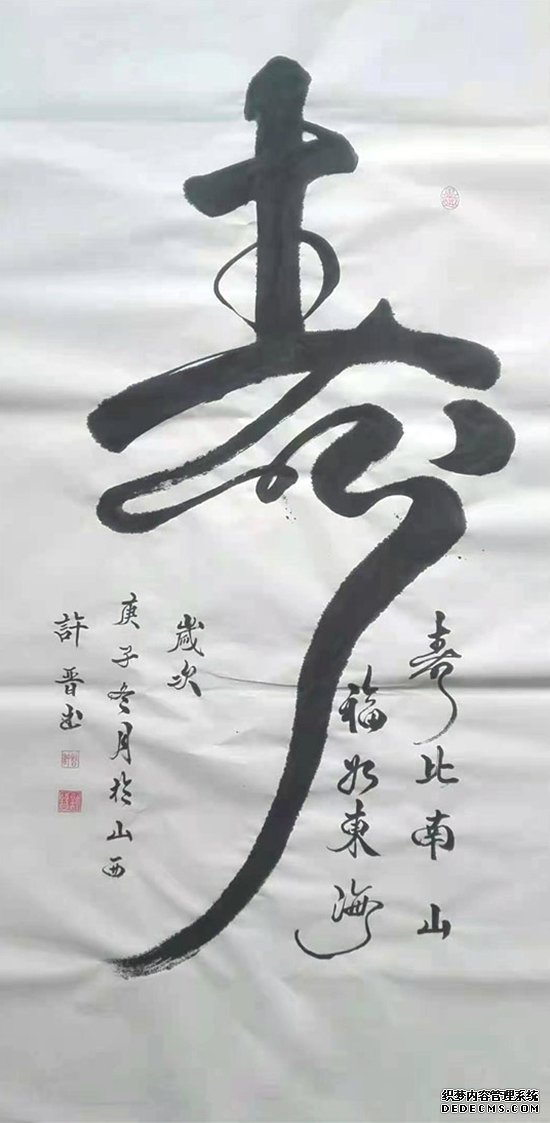 壽
壽比南山
福如東海
歲次
庚子冬月於山西
許晋書
织梦内容管理系统
DEDECMS.COM